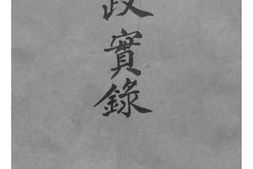 政實錄